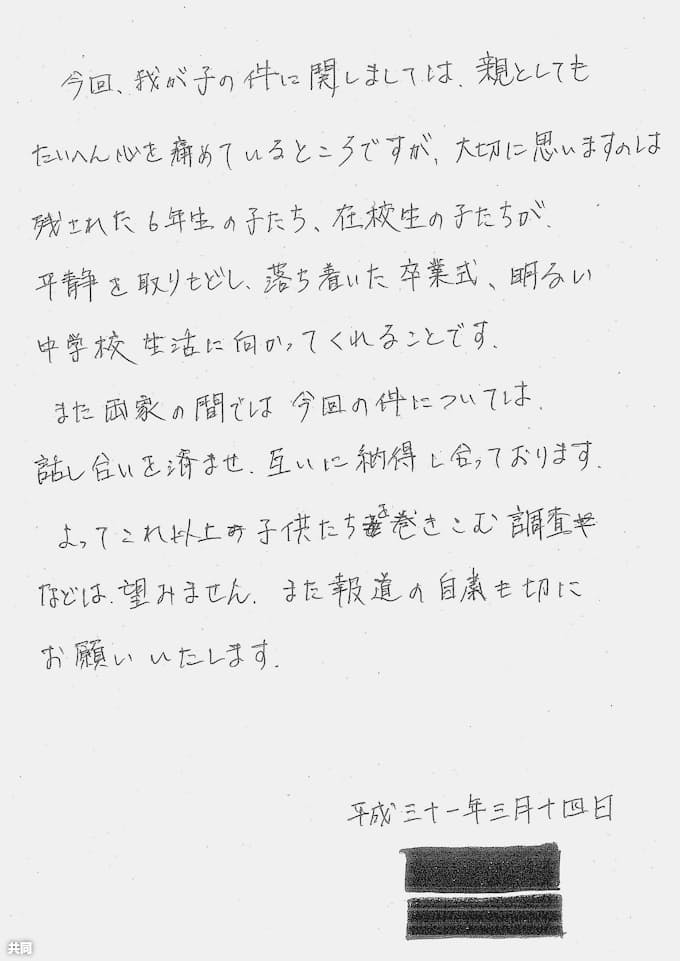 今回、我が子の件に関しましては、親としても
たいへん心を痛めているところですが、大切に思いますのは
残された6年生の子たち、在校生の子たちが、
平静を取りもどし、落ち着いた卒業式、明るい
中学校生活に向かってくれることです。
また両家の間では今回の件については、
話し合いを済ませ、互いに納得し合っております。
よってこれ以上子供たちを巻きこむ調査
などは、望みません。また報道の自粛も切に
お願いいたします。
平成三十一年三月十四日
共同